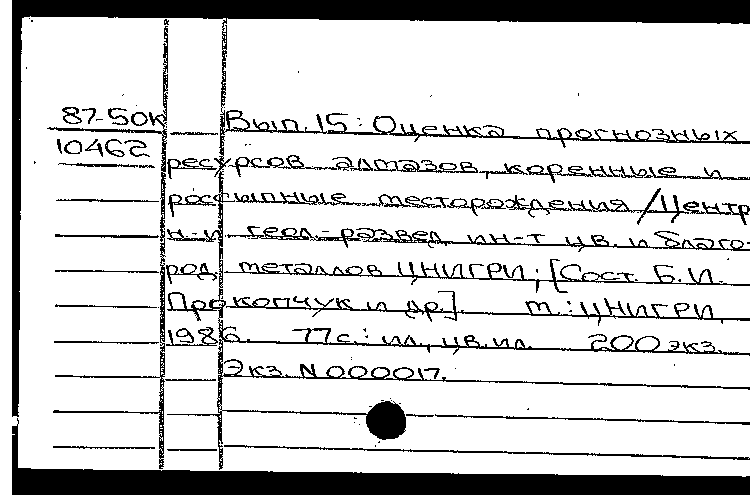 87-50к Вып. 15: Оценка прогнозных
10462 ресурсов алмазов, коренные и
россыпные месторождения / Центр
н.-и геол.-развед. ин-т цв. и благо-
род. металлов ЦНИГРИ; [Сост. Б.И.
Прокопчук и др.]. m.: ЦНИГРИ,
1986. 77 с.: ил., цв. ил. 200 экз.
Экз. N 000017.